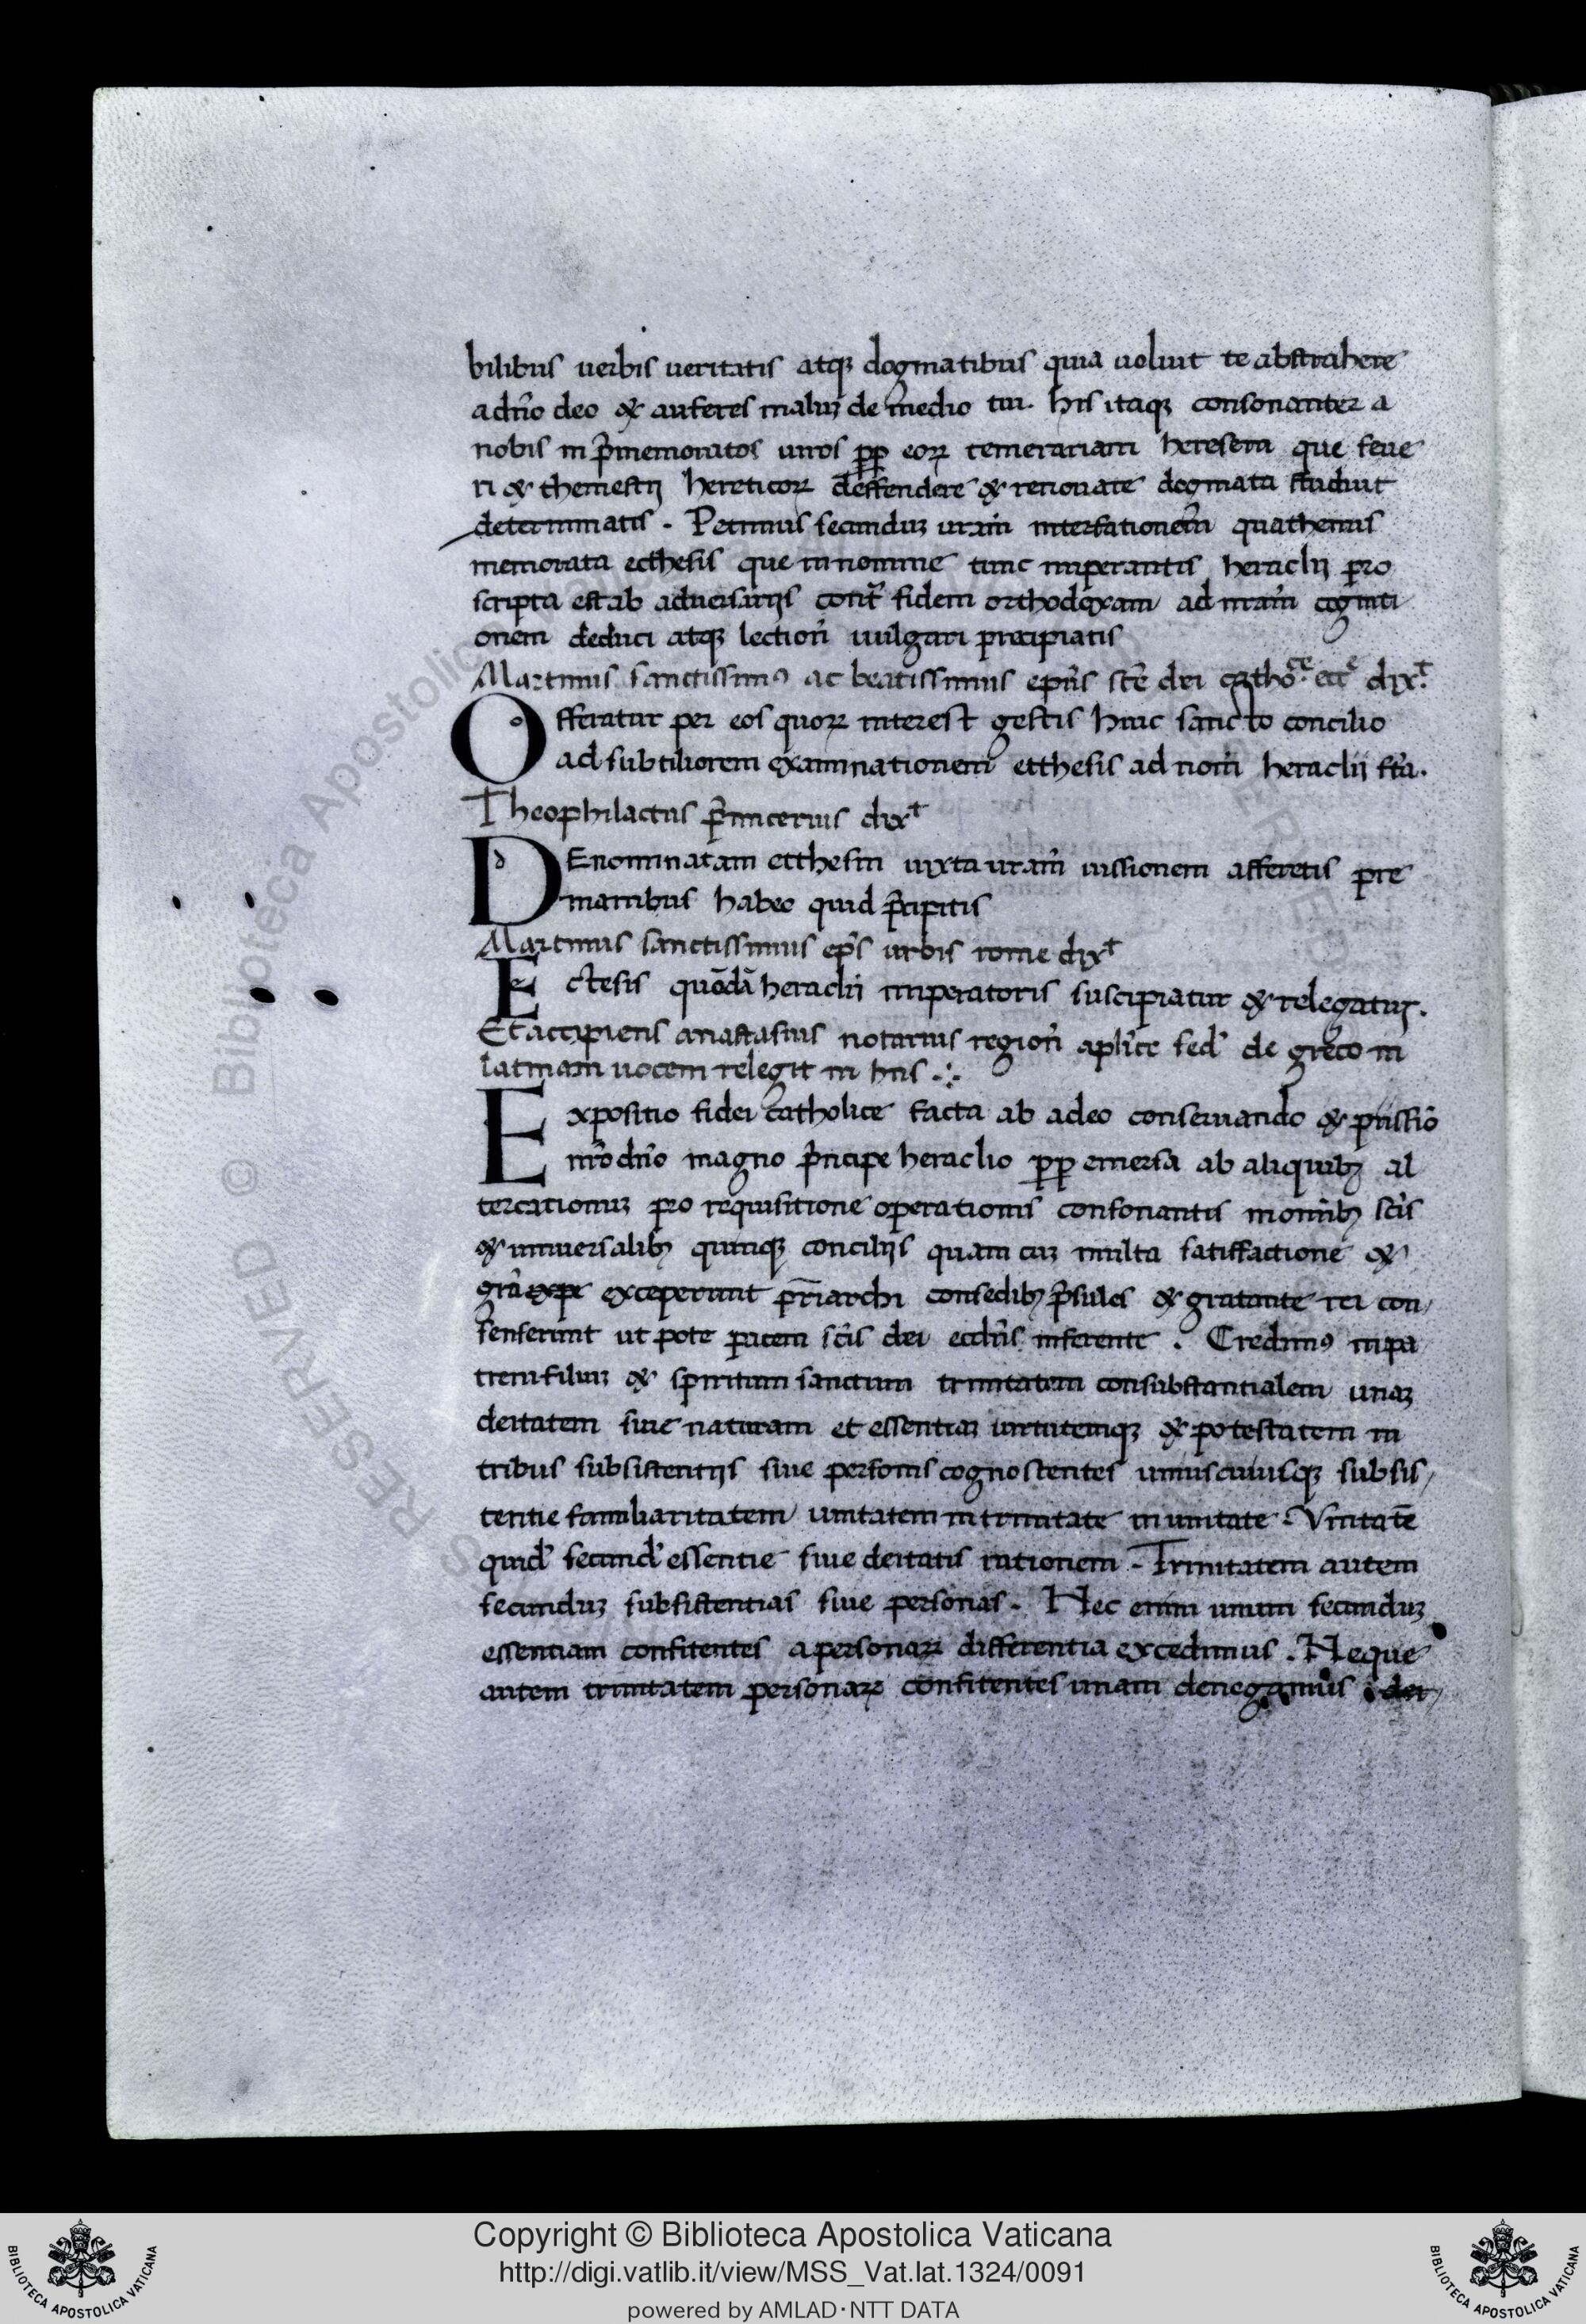 bilibus uerbis ueritatis atqꝫ dogmatibus quia uoluit te abstrahere
a dn̄o deo & auferes maluꝫ de medio tui. his itaqꝫ consonanter a
nobis in p̄memoratos uiros ꝓꝑ eoꝝ temerariam heresem que seue
ri & themestij hereticoꝝ deffendere & renouare dogmata studuit
determinatis. Petimus secunduꝫ ur̄am interfationem quathenus
memorata ecthesis que in nomine tunc imperantis heraclij pro
scripta est ab aduersarijs cont̄ fidem orthodoxam ad nr̄am cogniti
onem deduci atqꝫ lection̄ uulgari precipiatis
Martinus sanctissimꝰ ac beatissimus ep̄us sc̄e dei cathoce ecc̄e dixt
Offeratur per eos quoꝝ interest gestis huic sancto concilio
ad subtiliorem examinationem etthesis ad nom̄ heraclii fc̄a.
Theophilactus p̄imicerius dixt
DEnominatam etthesin iuxta ur̄am iussionem afferetis pre
manibus habeo quid p̄cipitis
Martinus sanctissimus ep̄s urbis rome dixt
Ectesis quōdā heraclii imperatoris suscipiatur & relegatur.
Et accipiens anastasius notarius region̄ aplice sed̄ de greco in
latinam uocem relegit in his .:.
Expositio fidei catholice facta ab a deo conseruando & piissīo
nr̄o dn̄o magno p̄ncipe heraclio ꝓꝑ emersa ab aliquibꝫ al
tercationuꝫ pro requisitione operationis consonantis in omībꝫ sc̄is
& uniuersalibꝫ quinqꝫ concilijs quam cuꝫ multa satisfactione &
gr̄a exceperunt pr̄iarchi consedibꝫ p̄sules & gratante rei con
senserunt ut pote pacem sc̄is dei eccl̄iis inferente. Credimꝰ in pa
trem filiuꝫ & spiritum sanctum trinitatem consubstantialem unaꝫ
deitatem siue naturam et essentiaꝫ uirtutemqꝫ & potestatem in
tribus subsistentijs siue personis cognoscentes uniuscuiusqꝫ subsis
tentie familiaritatem unitatem in trinitate in unitate. Vnitatē
quid̄ secund̄ essentie siue deitatis rationem. Trinitatem autem
secunduꝫ subsistentias siue personas. Nec enim unum secunduꝫ
essentiam confitentes a personaꝝ differentia excedimus. Neque
autem trinitatem personaꝝ confitentes unam denegamus dei
Copyright © Biblioteca Apostolica Vaticana
http://digi.vatlib.it/view/MSS_Vat.lat.1324/0091
powered by AMLAD·NTT DATA
BIBLIOTECA APOSTOLICA VATICANA
BIBLIOTECA APOSTOLICA VATICANA